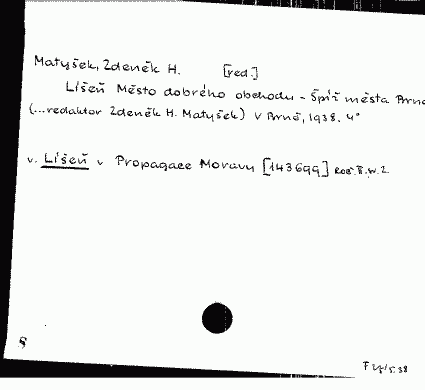 Matyšek, Zdeněk H. [red.]
Líšeň Město dobrého obchodu - Špíž města Brna
(...redaktor Zdeněk H. Matyšek) V Brně, 1938. 4°
v. Líšeň v Propagace Moravy [143699] Roč. II. č. 2.
8